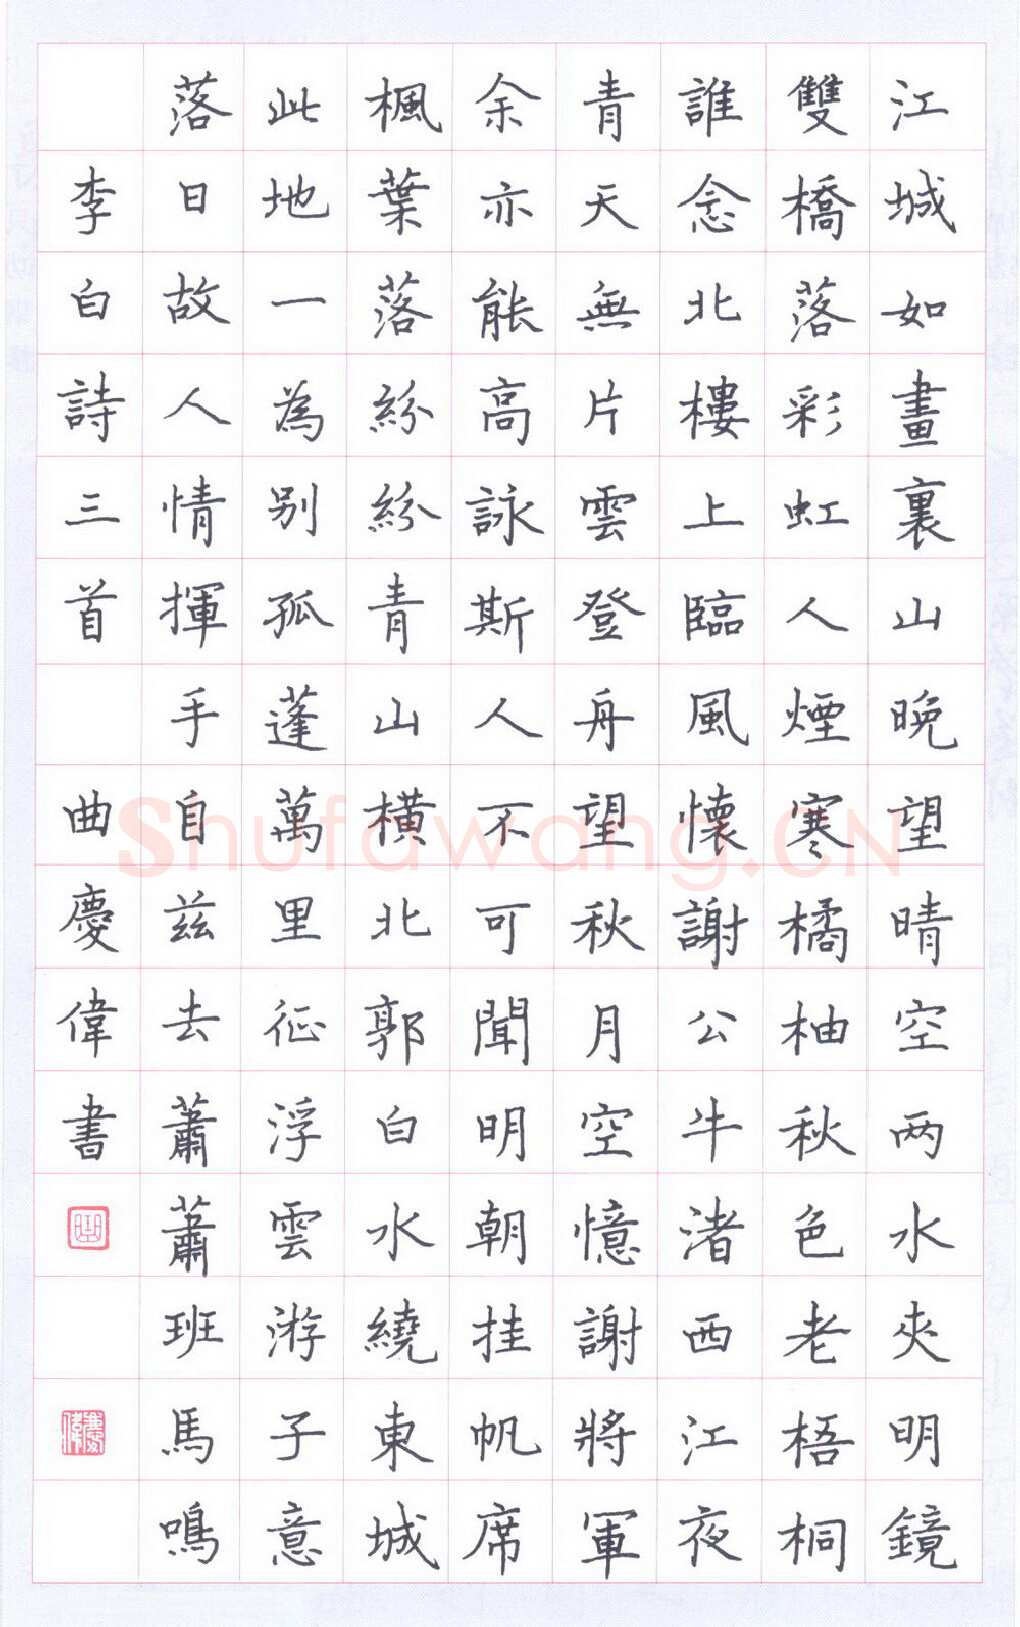 江城如畫裏山晚望晴空兩水夾明鏡
雙橋落彩虹人煙寒橘柚秋色老梧桐
誰念北樓上臨風懷謝公牛渚西江夜
青天無片雲登舟望秋月空憶謝將軍
余亦能高詠斯人不可聞明朝挂帆席
楓葉落紛紛青山橫北郭白水繞東城
此地一為别孤蓬萬里征浮雲游子意
落日故人情揮手自茲去蕭蕭班馬鳴
李白詩三首 曲慶偉書
Shufawang.CN